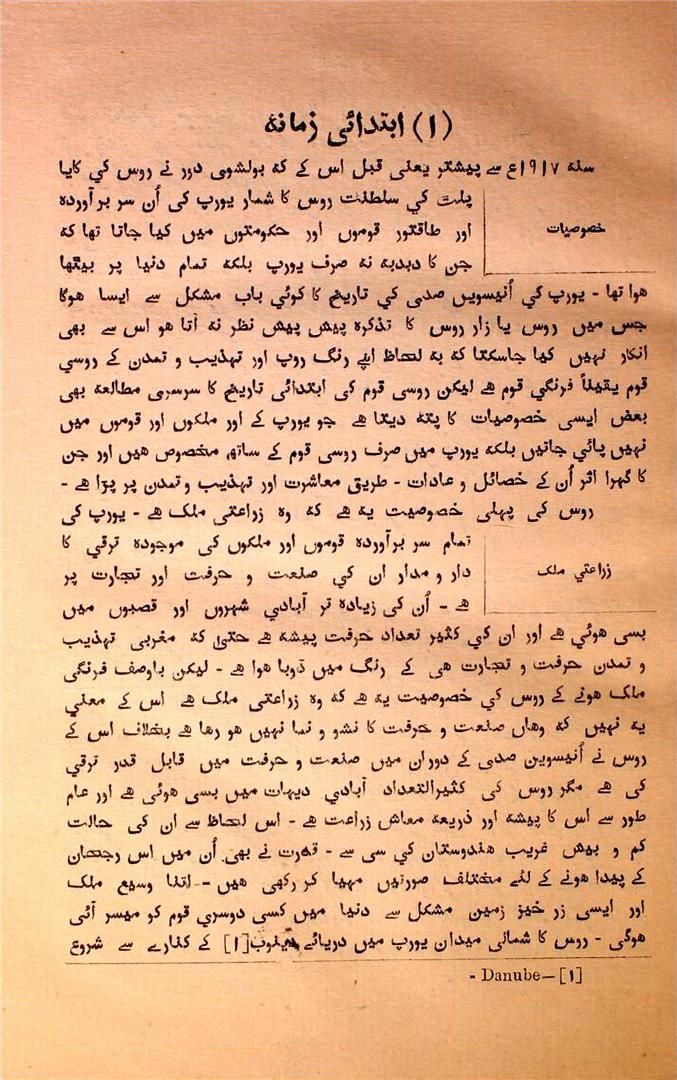 (۱) ابتدائی زمانہ
سنہ ۱۹۱۷ع سے پیشتر یعنی قبل اس کے کہ بولشوی دور نے روس کي کایا
پلٹ کي سلطنت روس کا شمار یورپ کی اُن سر بر آوردہ
خصوصیات
اور طاقتور قوموں اور حکومتوں میں کیا جاتا تھا کہ
جن کا دبدبہ نہ صرف یورپ بلکہ تمام دنیا پر بیٹھا
ھوا تھا - یورپ کی اُنیسویں صدی کی تاریخ کا کوئی باب مشکل سے ایسا ھوگا
جس میں روس یا زار روس کا تذکرہ پیش پیش نظر نہ آتا ھو اس سے بھی
انکار نہیں کیا جاسکتا کہ بہ لحاظ اپنے رنگ روپ اور تہذیب و تمدن کے روسي
قوم یقیناً فرنگي قوم ھے لیکن روسی قوم کی ابتدائی تاریخ کا سرسری مطالعہ بھی
بعض ایسی خصوصیات کا پتہ دیتا ھے جو یورپ کے اور ملکوں اور قوموں میں
نہیں پائي جاتیں بلکہ یورپ میں صرف روسی قوم کے ساتھہ مخصوص ھیں اور جن
کا گہرا اثر اُن کے خصائل و عادات - طریق معاشرت اور تہذیب و تمدن پر پڑا ھے -
روس کی پہلی خصوصیت یہ ھے کہ وہ زراعتی ملک ھے - یورپ کی
تمام سر بر آوردہ قوموں اور ملکوں کی موجودہ ترقي کا
زراعتي ملک
دار و مدار ان کي صنعت و حرفت اور تجارت پر
ھے - اُن کی زیادہ تر آبادي شہروں اور قصبوں میں
بسی ھوئي ھے اور ان کي کثیر تعداد حرفت پیشہ ھے حتیٰ کہ مغربی تہذیب
و تمدن حرفت و تجارت ھی کے رنگ میں ڈوبا ھوا ھے - لیکن باوصف فرنگی
ملک ھونے کے روس کي خصوصیت یہ ھے کہ وہ زراعتی ملک ھے اس کے معني
یہ نہیں کہ وھاں صنعت و حرفت کا نشو و نما نہیں ھو رھا ھے بخلاف اس کے
روس نے اُنیسویں صدی کے دوران میں صنعت و حرفت میں قابل قدر ترقي
کی ھے مگر روس کی کثیرالتعداد آبادي دیہات میں بسی ھوئی ھے اور عام
طور سے اس کا پیشہ اور ذریعہ معاش زراعت ھے - اس لحاظ سے ان کی حالت
کم و بیش غریب ھندوستان کي سی ھے - قدرت نے بھی اُن میں اس رجحان
کے پیدا ھونے کے لئے مختلف صورتیں مہیا کر رکھی ھیں - اتنا وسیع ملک
اور ایسی زر خیز زمین مشکل سے دنیا میں کسی دوسري قوم کو میسر آئی
ھوگی - روس کا شمالی میدان یورپ میں دریائے ڈینوب[۱] کے کنارے سے شروع
- Danube—[۱]